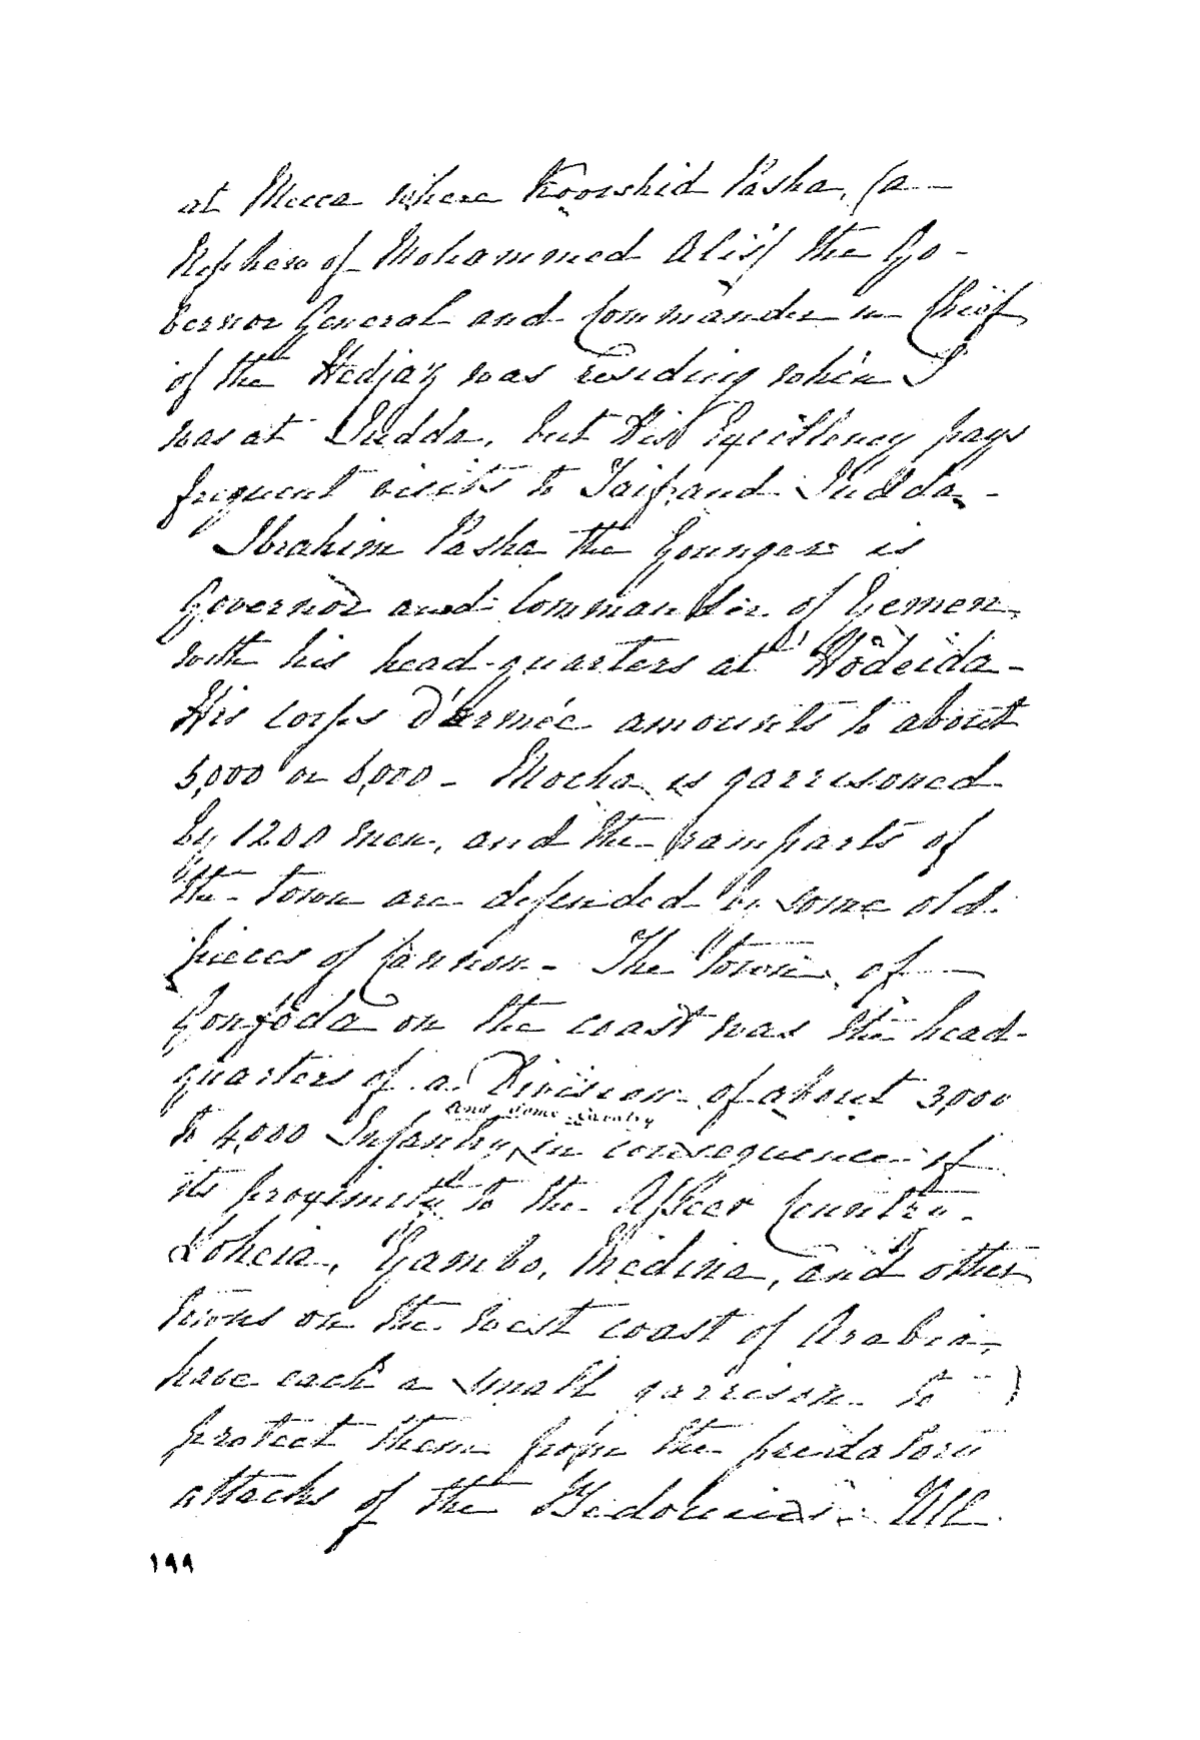 at Mecca where Koorshid Pasha, (a
Nephew of Mohammed Ali's) the Go-
vernor General and Commander in Chief
of the Hedjaz was residing when I
was at Judda, but His Excellency pays
frequent visits to Taif and Judda -
Ibrahim Pasha the Younger is
Governor and Commander of Yemen,
with his head-quarters at Hodeida -
His corps d'armée amounts to about
5,000 or 6,000 - Mocha is garrisoned
by 1200 men, and the ramparts of
the town are defended by some old
pieces of Cannon - The town of
Gonfoda on the coast was the head-
quarters of a Division of about 3,000
and some Cavalry
to 4,000 Infantry, in consequence of
its proximity to the Asseer Country -
Loheia, Yambo, Medina, and other
towns on the West coast of Arabia,
have each a small garrison to
protect them from the predatory
attacks of the Bedouins. All
١٩٩